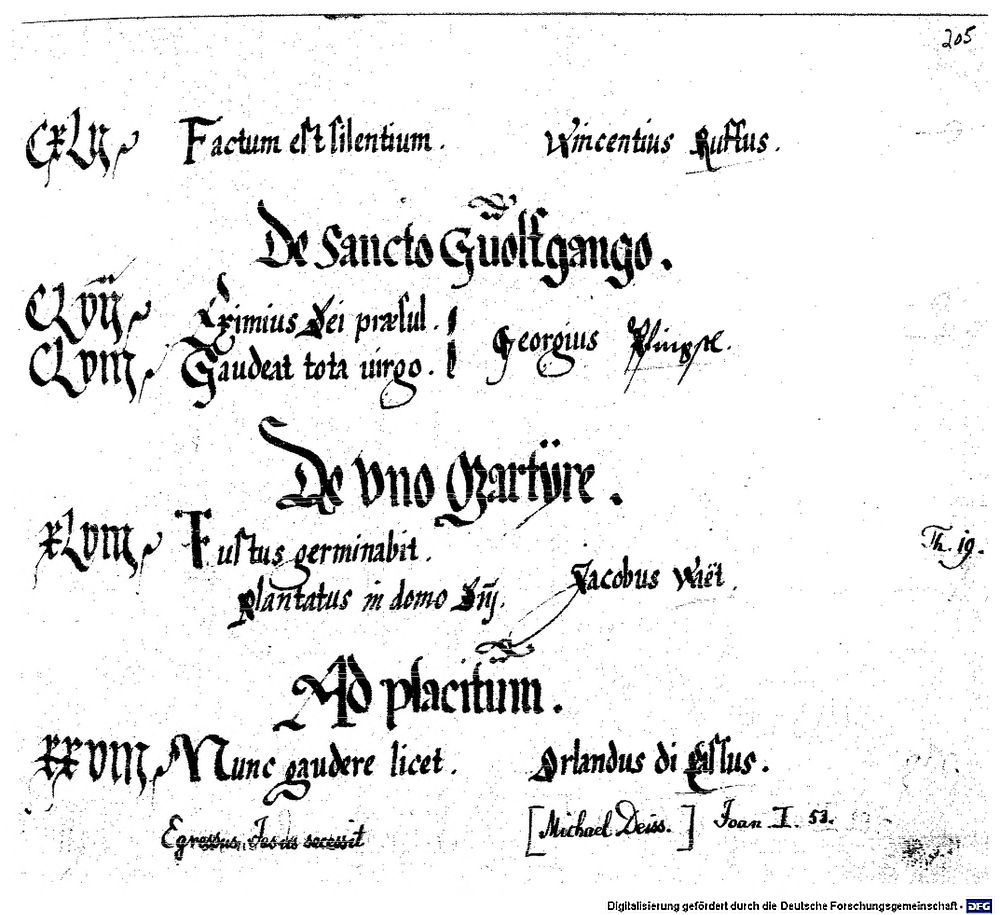 205
CXLII Factum est silentium. Wincentius Ruffus.
De Sancto Guolfgango.
CLVII Eximius Dei præsul.
CLVIII Gaudeat tota uirgo. Georgius
De Uno Martÿre.
XLVIII Iustus germinabit. Th. 19.
plantatus in domo Dnj. Jacobus Waët.
Ad placitum.
XXVIII Nunc gaudere licet. Orlandus di Lassus.
Egressus Jesus secessit [Michael Deiss.] Joan I. 53.
Digitalisierung gefördert durch die Deutsche Forschungsgemeinschaft - DFG